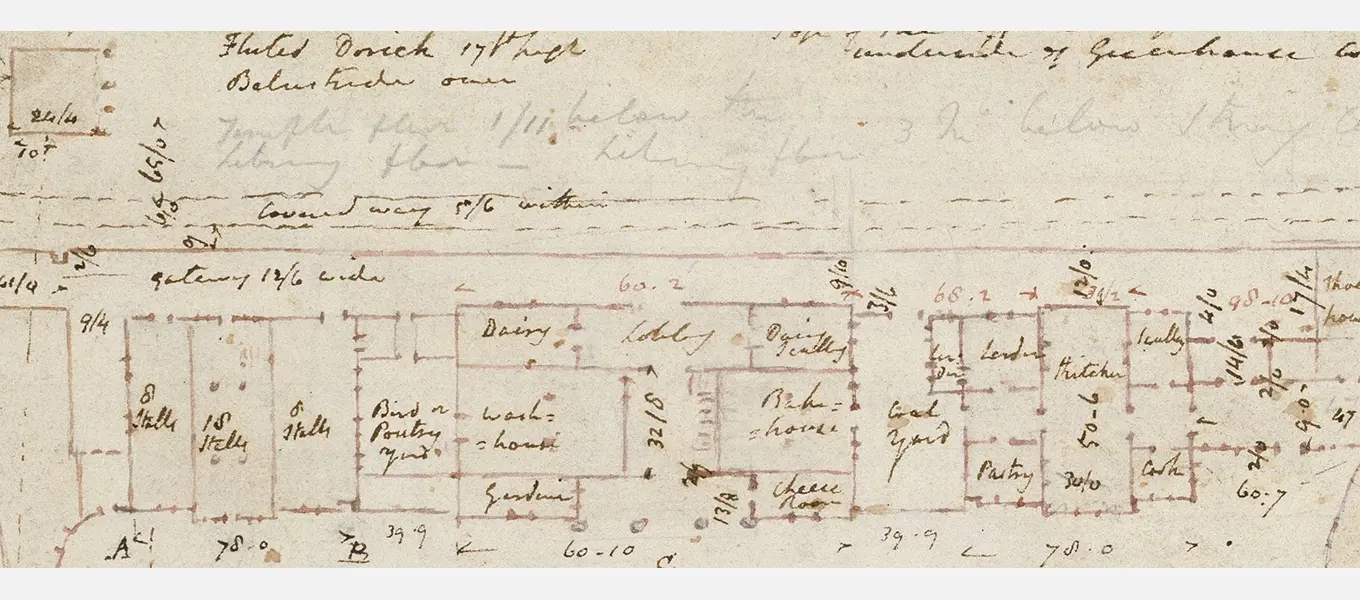 Fluted Dorick 17ft high
Balustrade over
underside of Greenhouse
24/4
10f
Temple floor 1/11 below the
Library floor —
Library floor
3 In below String
65/0
Covered way 5/6 within
2/6
gateway 12/6 wide
60.2
9/10
3/6
68.2
12/0
4/0
98-10
17/4
9/4
Dairy
Lobby
Dairy
Scullery
Larder
Kitchen
Scully
14/6
2/0
8
Stalls
18
Stalls
8
Stalls
Bird or
Poutry
yard
wash=
=house
32/8
Bake=
=house
Coal
Yard
50-6
9-0
47
Gardine
13/8
Cheese
Room
Pastry
30/0
Cook
2/0
60.7
A
78.0
B
39.9
60-10
39.9
78.0